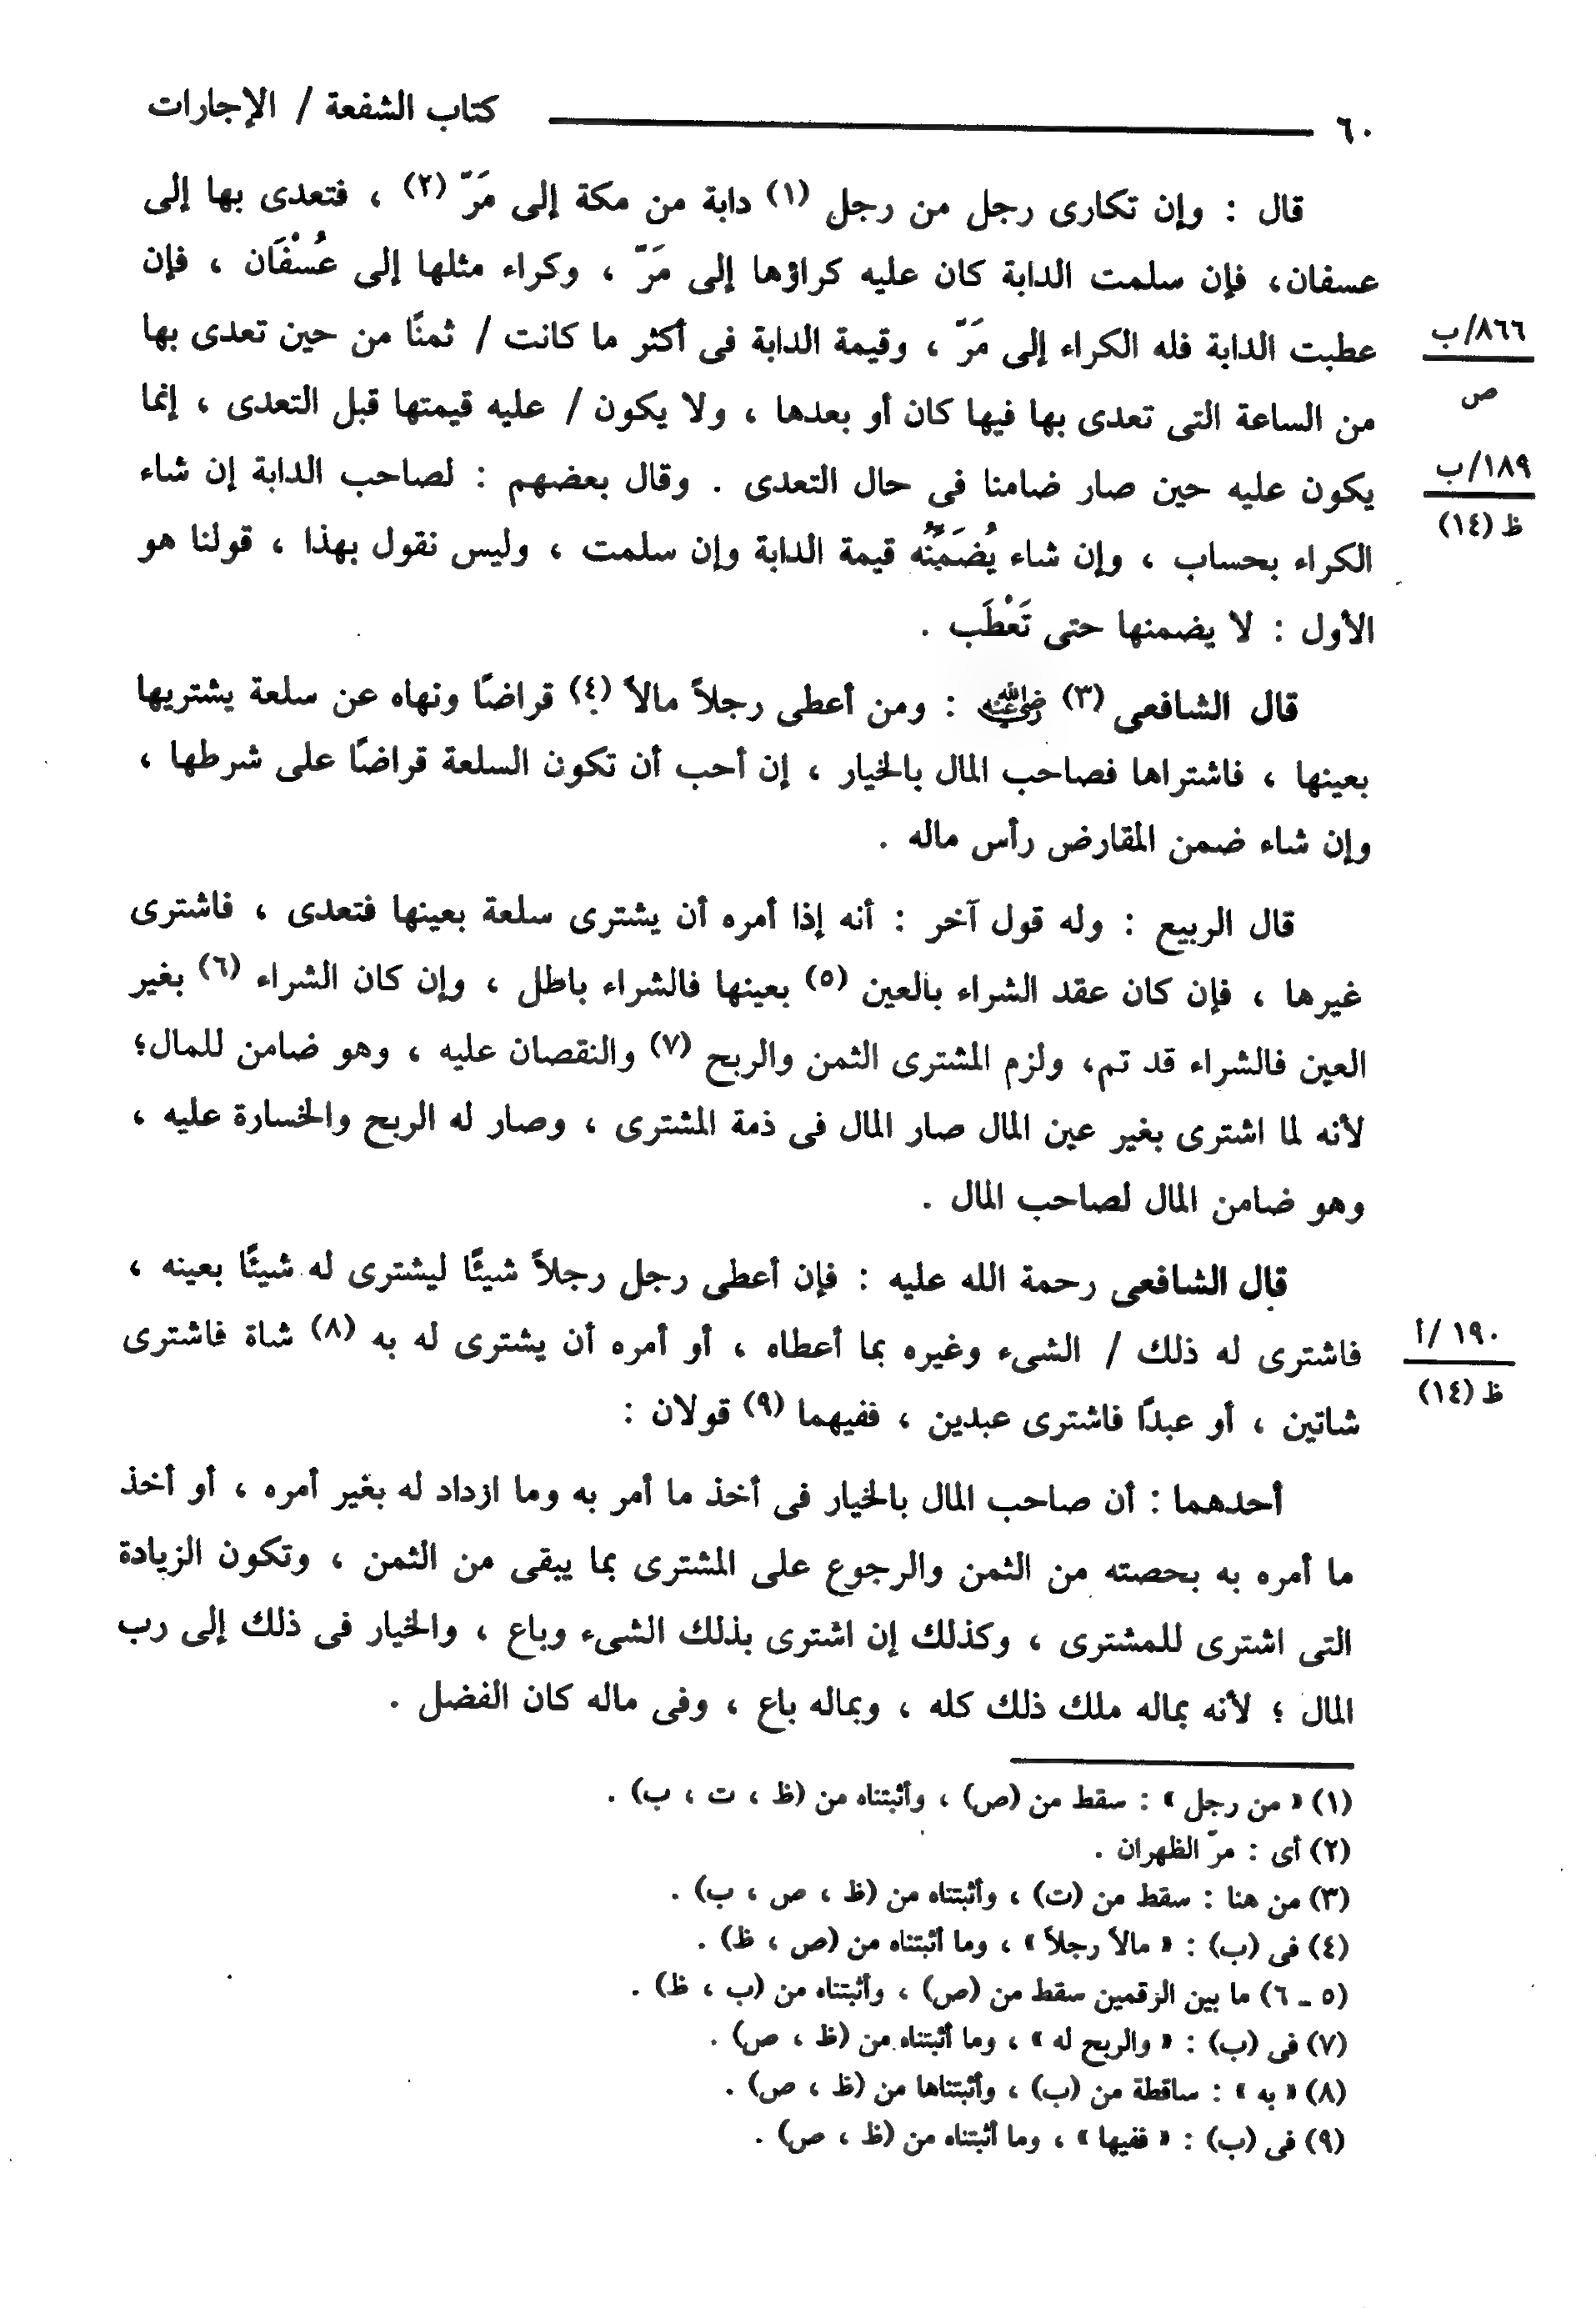 ٦٠ كتاب الشفعة / الإجارات
قال : وإن تكارى رجل من رجل (١) دابة من مكة إلى مَرّ (٢) ، فتعدى بها إلى
عسفان، فإن سلمت الدابة كان عليه كراؤها إلى مَرّ ، وكراء مثلها إلى عُسْفَان ، فإن
عطبت الدابة فله الكراء إلى مَرّ ، وقيمة الدابة فى أكثر ما كانت / ثمنًا من حين تعدى بها
٨٦٦/ب
ص
من الساعة التى تعدى بها فيها كان أو بعدها ، ولا يكون / عليه قيمتها قبل التعدى ، إنما
يكون عليه حين صار ضامنا فى حال التعدى . وقال بعضهم : لصاحب الدابة إن شاء
١٨٩/ب
ظ (١٤)
الكراء بحساب ، وإن شاء يُضَمِّنُه قيمة الدابة وإن سلمت ، وليس نقول بهذا ، قولنا هو
الأول : لا يضمنها حتى تَعْطَب .
قال الشافعى (٣) رضي الله عنه : ومن أعطى رجلاً مالاً (٤) قراضًا ونهاه عن سلعة يشتريها
بعينها ، فاشتراها فصاحب المال بالخيار ، إن أحب أن تكون السلعة قراضًا على شرطها ،
وإن شاء ضمن المقارض رأس ماله .
قال الربيع : وله قول آخر : أنه إذا أمره أن يشترى سلعة بعينها فتعدى ، فاشترى
غيرها ، فإن كان عقد الشراء بالعين (٥) بعينها فالشراء باطل ، وإن كان الشراء (٦) بغير
العين فالشراء قد تم، ولزم المشترى الثمن والربح (٧) والنقصان عليه ، وهو ضامن للمال؛
لأنه لما اشترى بغير عين المال صار المال فى ذمة المشترى ، وصار له الربح والخسارة عليه ،
وهو ضامن المال لصاحب المال .
قال الشافعى رحمة الله عليه : فإن أعطى رجل رجلاً شيئًا ليشترى له شيئًا بعينه ،
فاشترى له ذلك / الشىء وغيره بما أعطاه ، أو أمره أن يشترى له به (٨) شاة فاشترى
١٩٠/أ
ظ (١٤)
شاتين ، أو عبدًا فاشترى عبدين ، ففيهما (٩) قولان :
أحدهما : أن صاحب المال بالخيار فى أخذ ما أمر به وما ازداد له بغير أمره ، أو أخذ
ما أمره به بحصته من الثمن والرجوع على المشترى بما يبقى من الثمن ، وتكون الزيادة
التى اشترى للمشترى ، وكذلك إن اشترى بذلك الشىء وباع ، والخيار فى ذلك إلى رب
المال ؛ لأنه بماله ملك ذلك كله ، وبماله باع ، وفى ماله كان الفضل .
(١) « من رجل » : سقط من (ص) ، وأثبتناه من (ظ ، ت ، ب) .
(٢) أى : مرّ الظهران .
(٣) من هنا : سقط من (ت) ، وأثبتناه من (ظ ، ص ، ب) .
(٤) فى (ب) : « مالاً رجلاً » ، وما أثبتناه من (ص ، ظ) .
(٥ ـ ٦) ما بين الرقمين سقط من (ص) ، وأثبتناه من (ب ، ظ) .
(٧) فى (ب) : « والربح له » ، وما أثبتناه من (ظ ، ص) .
(٨) « به » : ساقطة من (ب) ، وأثبتناها من (ظ ، ص) .
(٩) فى (ب) : « ففيها » ، وما أثبتناه من (ظ ، ص) .